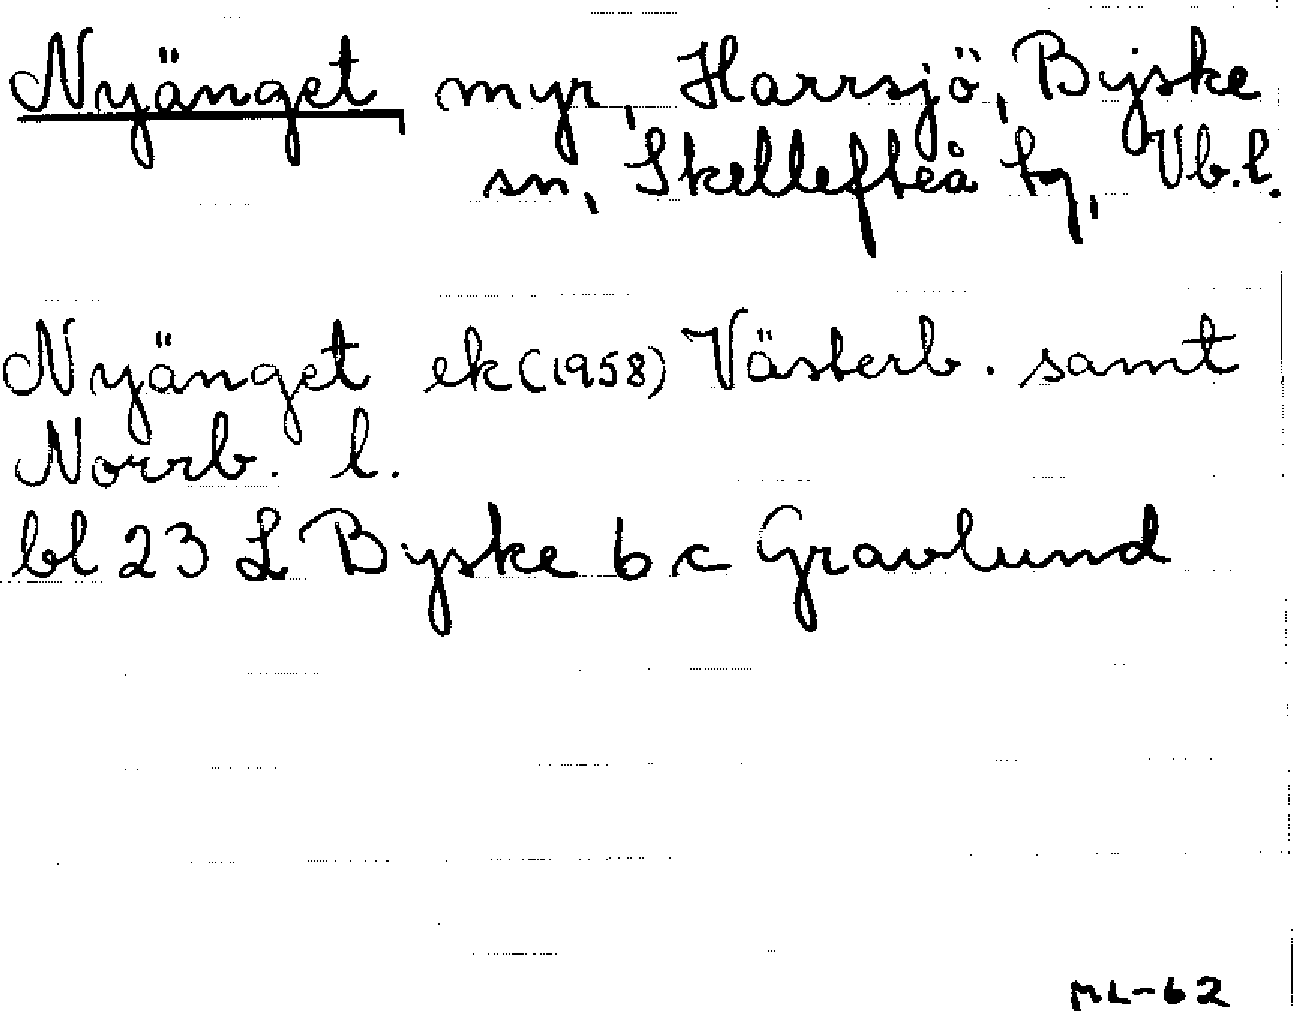 Nyänget myr, Harrsjö, Byske
sn, Skellefteå tg, Vb.l.
Nyänget ek (1958) Västerb. samt
Norrb. l.
bl 23 L Byske 6 c Gravlund
ML-62